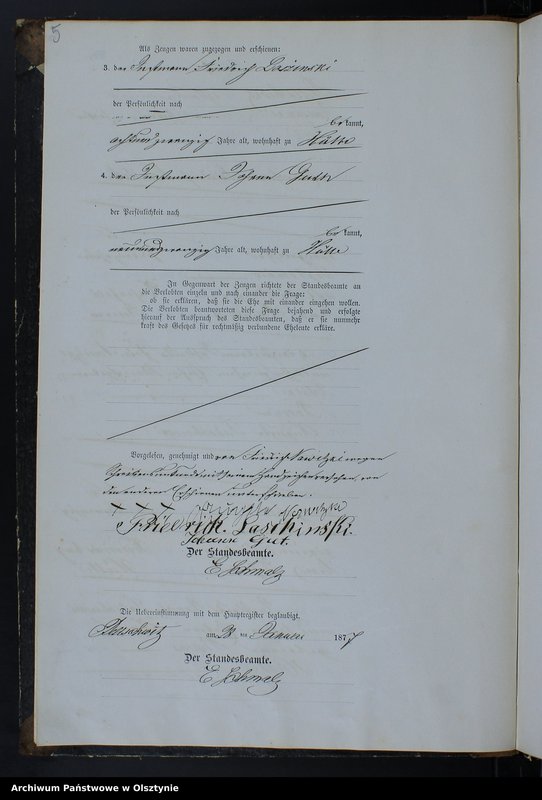 5
Als Zeugen waren zugezogen und erschienen:
3. der Instmann Friedrich
der Persönlichkeit nach
bekannt,
achtundzwanzig Jahre alt, wohnhaft zu Hütte
4. der Instmann Johann
der Persönlichkeit nach
bekannt,
neunundzwanzig Jahre alt, wohnhaft zu Hütte
In Gegenwart der Zeugen richtete der Standesbeamte an
die Verlobten einzeln und nach einander die Frage:
ob sie erklären, daß sie die Ehe mit einander eingehen wollen.
Die Verlobten beantworteten diese Frage bejahend und erfolgte
hierauf der Ausspruch des Standesbeamten, daß er sie nunmehr
kraft des Gesetzes für rechtmäßig verbundene Eheleute erkläre.
Vorgelesen, genehmigt und von wegen
Schreibensunkunde mit Handzeichen versehen, von
den anderen Erschienenen unterschrieben.
+ + +
Friedrich Laschinski.
Johann Gut.
Der Standesbeamte.
E Schmalz
Die Uebereinstimmung mit dem Hauptregister beglaubigt.
am 23 ten Januar 1877
Der Standesbeamte.
E Schmalz
Archiwum Państwowe w Olsztynie